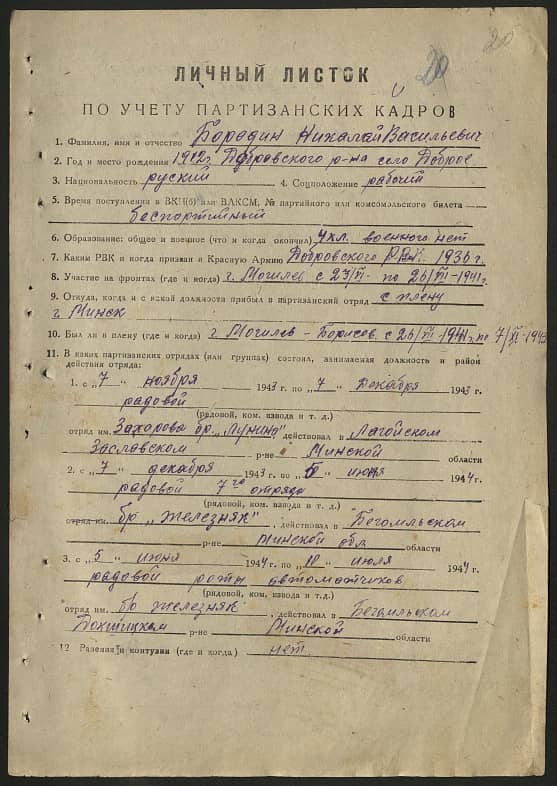 20 20
ЛИЧНЫЙ ЛИСТОК
ПО УЧЕТУ ПАРТИЗАНСКИХ КАДРОВ
1. Фамилия, имя и отчество Бородин Николай Васильевич
2. Год и место рождения 1912г. Добровского р-на село Доброе
3. Национальность русский 4. Соцположение рабочий
5. Время поступления в ВКП(б) или ВЛКСМ, № партийного или комсомольского билета
беспортийный
6. Образование: общее и военное (что и когда окончил) 4 кл. военного нет
7. Каким РВК и когда призван в Красную Армию Добровского РВК. 1936 г.
8. Участие на фронтах (где и когда) г. Могилев с 27/VI по 26/VII-1941г.
9. Откуда, когда и с какой должности прибыл в партизанский отряд с плену
г. Минск
10. Был ли в плену (где и когда) г. Могилев - Борисов с 26/VII-1941г. по 7/XI-1943
11. В каких партизанских отрядах (или группах) состоял, занимаемая должность и район
действия отряда:
1. с „7" ноября 1943 г. по „7" декабря 1943 г.
радовой
(рядовой, ком. взвода и т. д.)
отряд им. Захарова бр. „Лунина" действовал в Лагойском
Заславском р-не Минской области
2. с „7" декабря 1943 г. по „5" июня 1944 г.
радовой 7го отряда
(рядовой, ком. взвода и т. д.)
отряд им. бр „Железняк", действовал в Бегомльском
р-не Минской обл области
3. с „5" июня 1944 г. по „10" июля 1944 г.
радовой роты автоматчиков
(рядовой, ком. взвода и т. д.)
отряд им. бр железняк, действовал в Бегомльском
р-не Минской области
12 Ранения и контузии (где и когда) нет